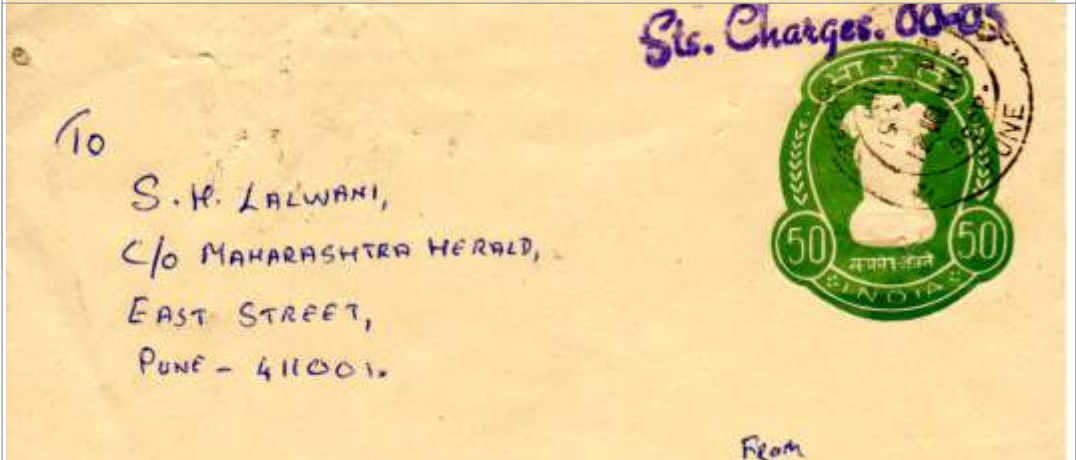 Sts. Charges. 00-05
भारत
UNE
50 50
सत्यमेव जयते
INDIA
TO
S.H. LALWANI,
C/O MAHARASHTRA HERALD,
EAST STREET,
PUNE - 411001.
From